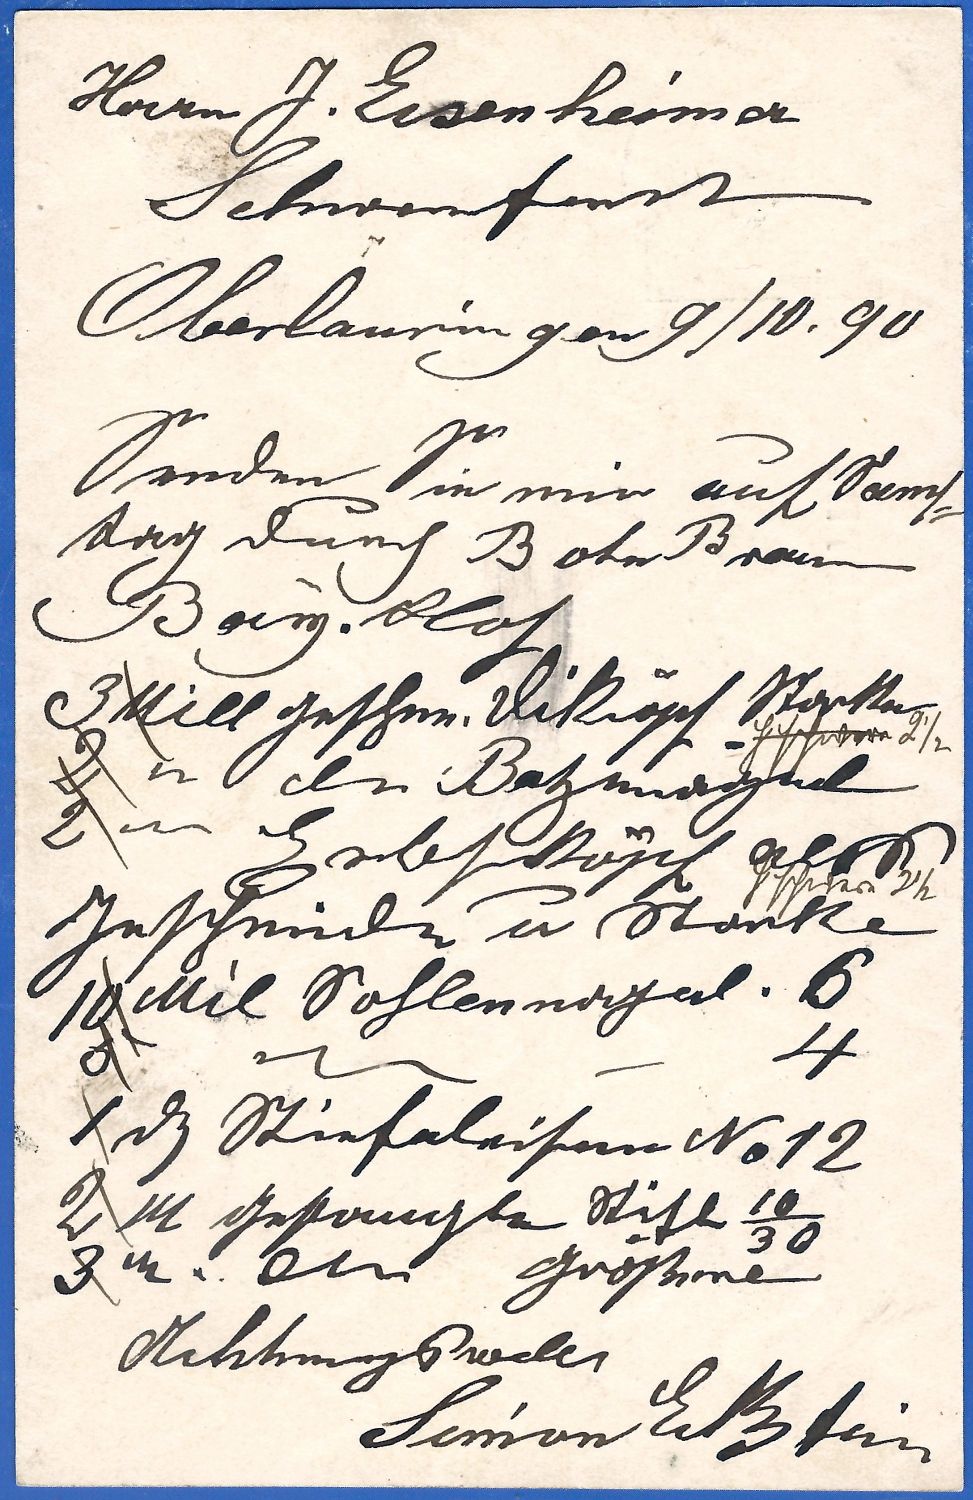 Herrn J. Eisenheimer
Schweinfurt
Oberlauringen 9/10. 90
Senden Sie mir auf Sams-
tag durch Bote Braun
Bayr. Hof
3 Mill geschm. Dikköpf Starke
2 1/2
4 " der Batznagel
2 " Erbsköpf
Geschmide u Starke
10 Mil Sohlennagel. 6
4
1 dz Stiefeleisen No 12
2 M gestampfte Stift 10/30
3 M. " der größere
Achtungsvoller
Simon Eckstein